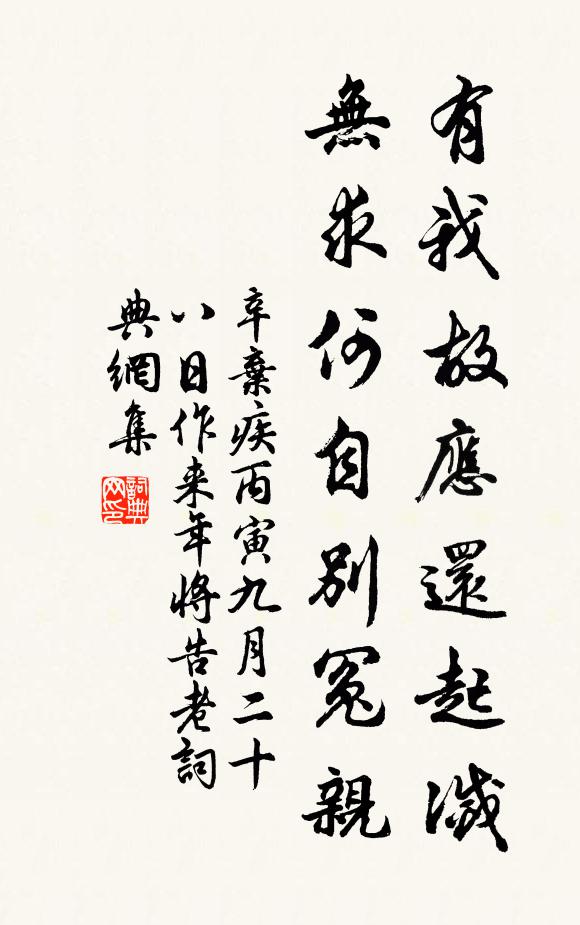 有我故應還起滅
無求何自別冤親
辛棄疾丙寅九月二十
八日作来年將告老詞
典網集
詞典
网印